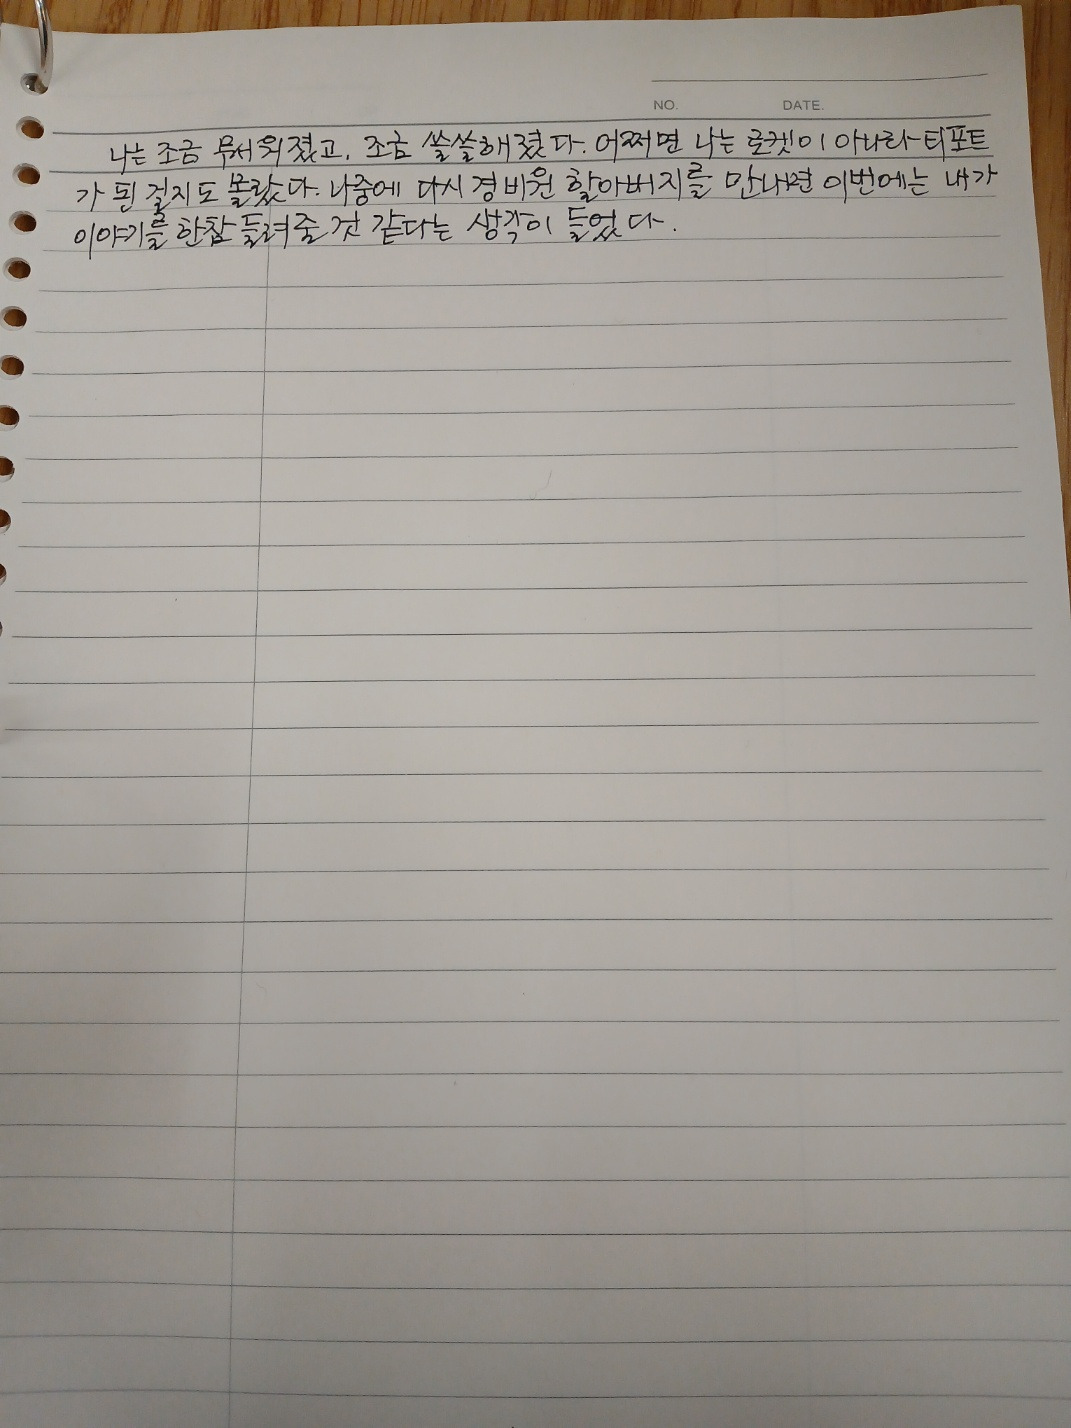 NO. DATE.
나는 조금 무서워졌고, 조금 쓸쓸해졌다. 어쩌면 나는 로켓이 아니라 티포트
가 된 걸지도 몰랐다. 나중에 다시 경비원 할아버지를 만나면 이번에는 내가
이야기를 한참 들려줄 것 같다는 생각이 들었다.